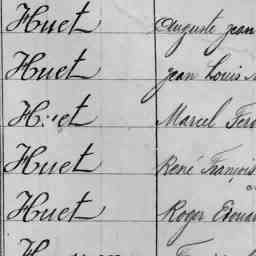 Huet Auguste Jean
Huet Jean Louis
Huet Marcel
Huet René François
Huet Roger